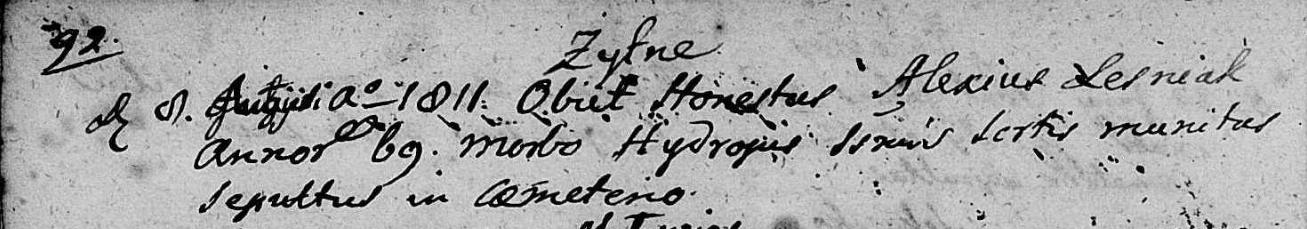 92.
Zytne
d. 8. Augusti aº 1811. Obiit Honestus Alexius Lesniak
annor 69. morbo Hydropis Ssmis Scrtis munitus
sepultus in Cœmeterio.